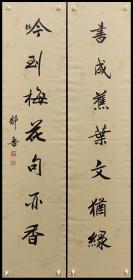 書成蕉葉文猶綠
吟到梅花句亦香